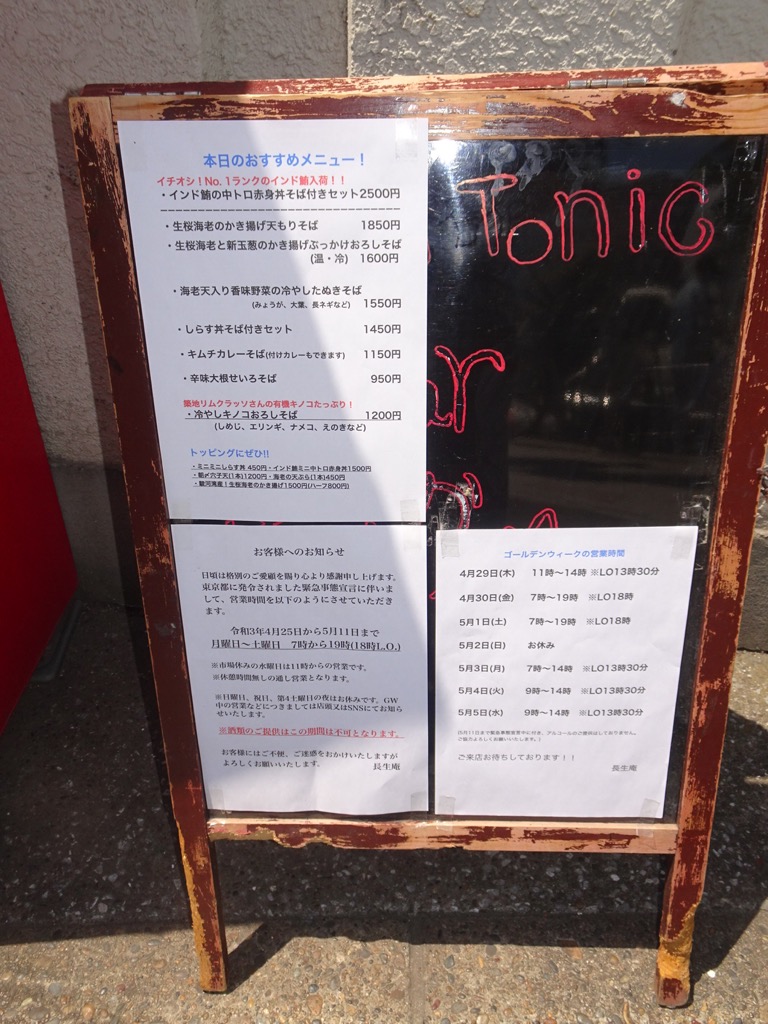 本日のおすすめメニュー!
イチオシ!No. 1ランクのインド鮪入荷!!
・インド鮪の中トロ赤身丼そば付きセット2500円
・生桜海老のかき揚げ天もりそば 1850円
・生桜海老と新玉葱のかき揚げぶっかけおろしそば
(温・冷) 1600円
・海老天入り香味野菜の冷やしたぬきそば
(みょうが、大葉、長ネギなど) 1550円
・しらす丼そば付きセット 1450円
・キムチカレーそば(付けカレーもできます) 1150円
・辛味大根せいろそば 950円
築地リムクラッソさんの有機キノコたっぷり!
・冷やしキノコおろしそば 1200円
(しめじ、エリンギ、ナメコ、えのきなど)
トッピングにぜひ!!
・ミニミニしらす丼 450円・インド鮪ミニ中トロ赤身丼1500円
・煮〆穴子天(1本)1200円・海老の天ぷら(1本)450円
・駿河湾産!生桜海老のかき揚げ1500円(ハーフ800円)
Tonic
ar
お客様へのお知らせ
日頃は格別のご愛顧を賜り心より感謝申し上げます。
東京都に発令されました緊急事態宣言に伴いま
して、営業時間を以下のようにさせていただき
ます。
令和3年4月25日から5月11日まで
月曜日〜土曜日 7時から19時(18時L.O.)
※市場休みの水曜日は11時からの営業です。
※休憩時間無しの通し営業となります。
※日曜日、祝日、第4土曜日の夜はお休みです。GW
中の営業などにつきましては店頭又はSNSにてお知ら
せいたします。
※酒類のご提供はこの期間は不可となります。
お客様にはご不便、ご迷惑をおかけいたしますが
よろしくお願いいたします。 長生庵
ゴールデンウィークの営業時間
4月29日(木) 11時〜14時 ※LO13時30分
4月30日(金) 7時〜19時 ※LO18時
5月1日(土) 7時〜19時 ※LO18時
5月2日(日) お休み
5月3日(月) 7時〜14時 ※LO13時30分
5月4日(火) 9時〜14時 ※LO13時30分
5月5日(水) 9時〜14時 ※LO13時30分
(5月11日まで緊急事態宣言中に付き、アルコールのご提供はしておりません。
ご協力よろしくお願いいたします。)
ご来店お待ちしております!!
長生庵